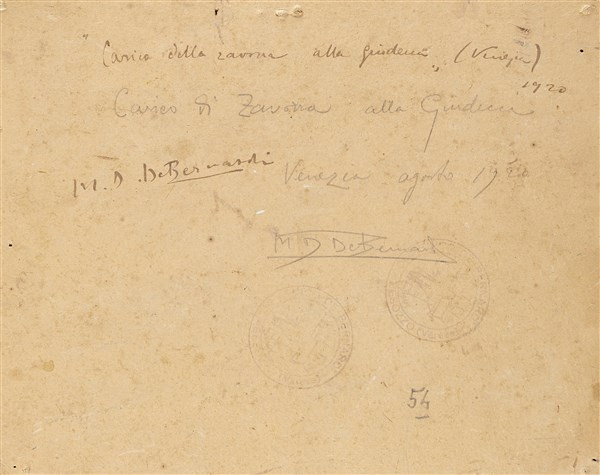 "Carico della zavorra alla giudecca" (Venezia)
1920
Carico di Zavorra alla Giudecca
M. D. DeBernardi
Venezia agosto 1920
M D DeBernardi
54